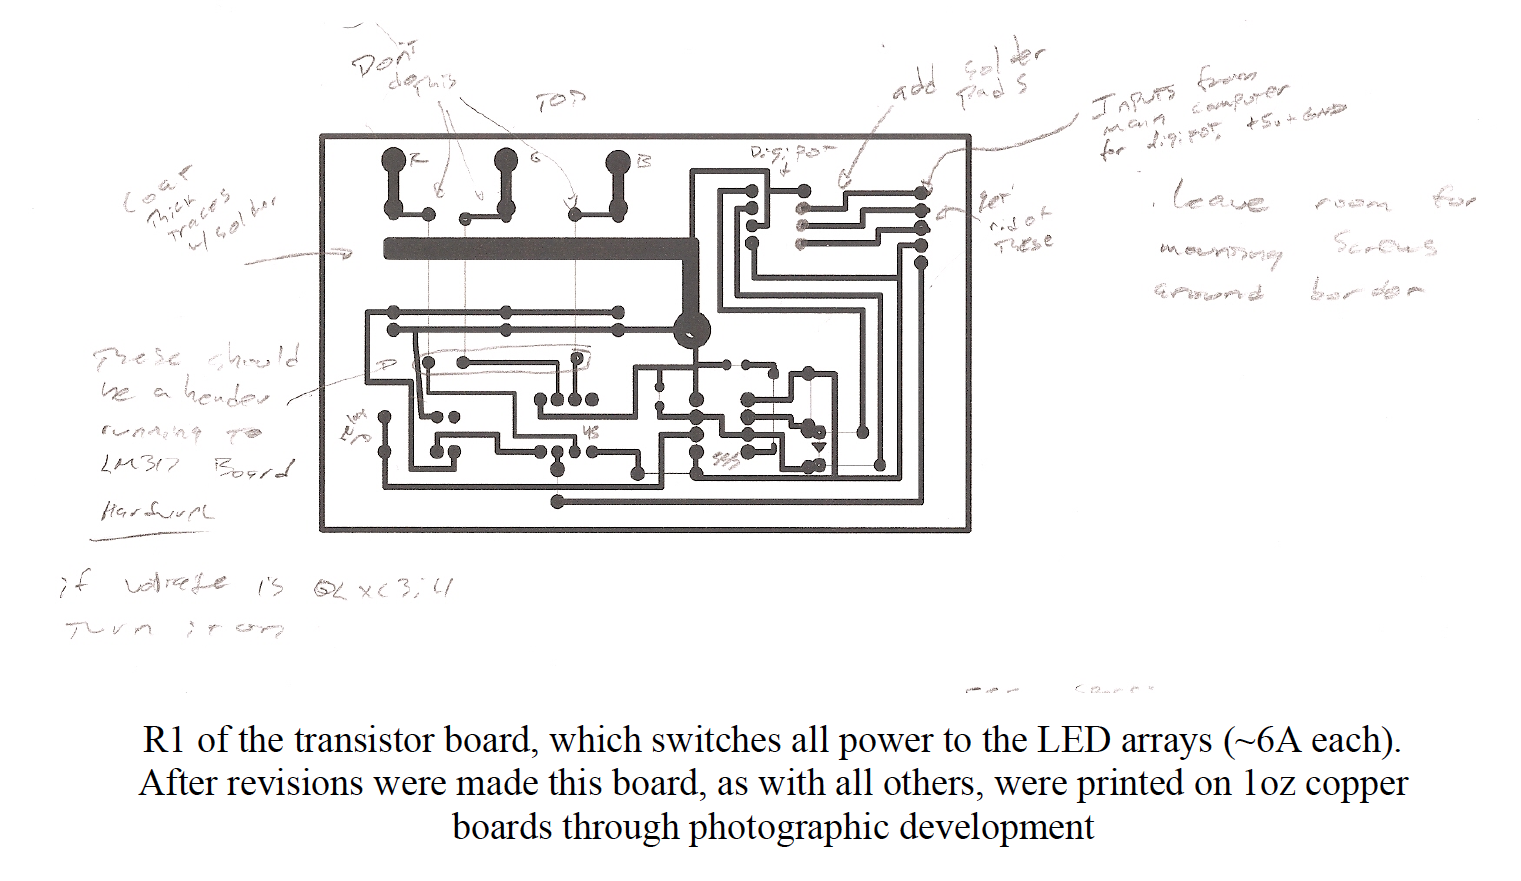 Don't
TOP
add solder
pads
Inputs from
main computer
for digipot, +5v+GND
R
G
B
Digipot
Coat
Thick
Traces
w/ solder
get
rid of
These
Leave room for
mounting screws
around border
These should
be a header
running to
LM317 Board
Hardware
555
if voltage is
Turn it on
R1 of the transistor board, which switches all power to the LED arrays (~6A each).
After revisions were made this board, as with all others, were printed on 1oz copper
boards through photographic development